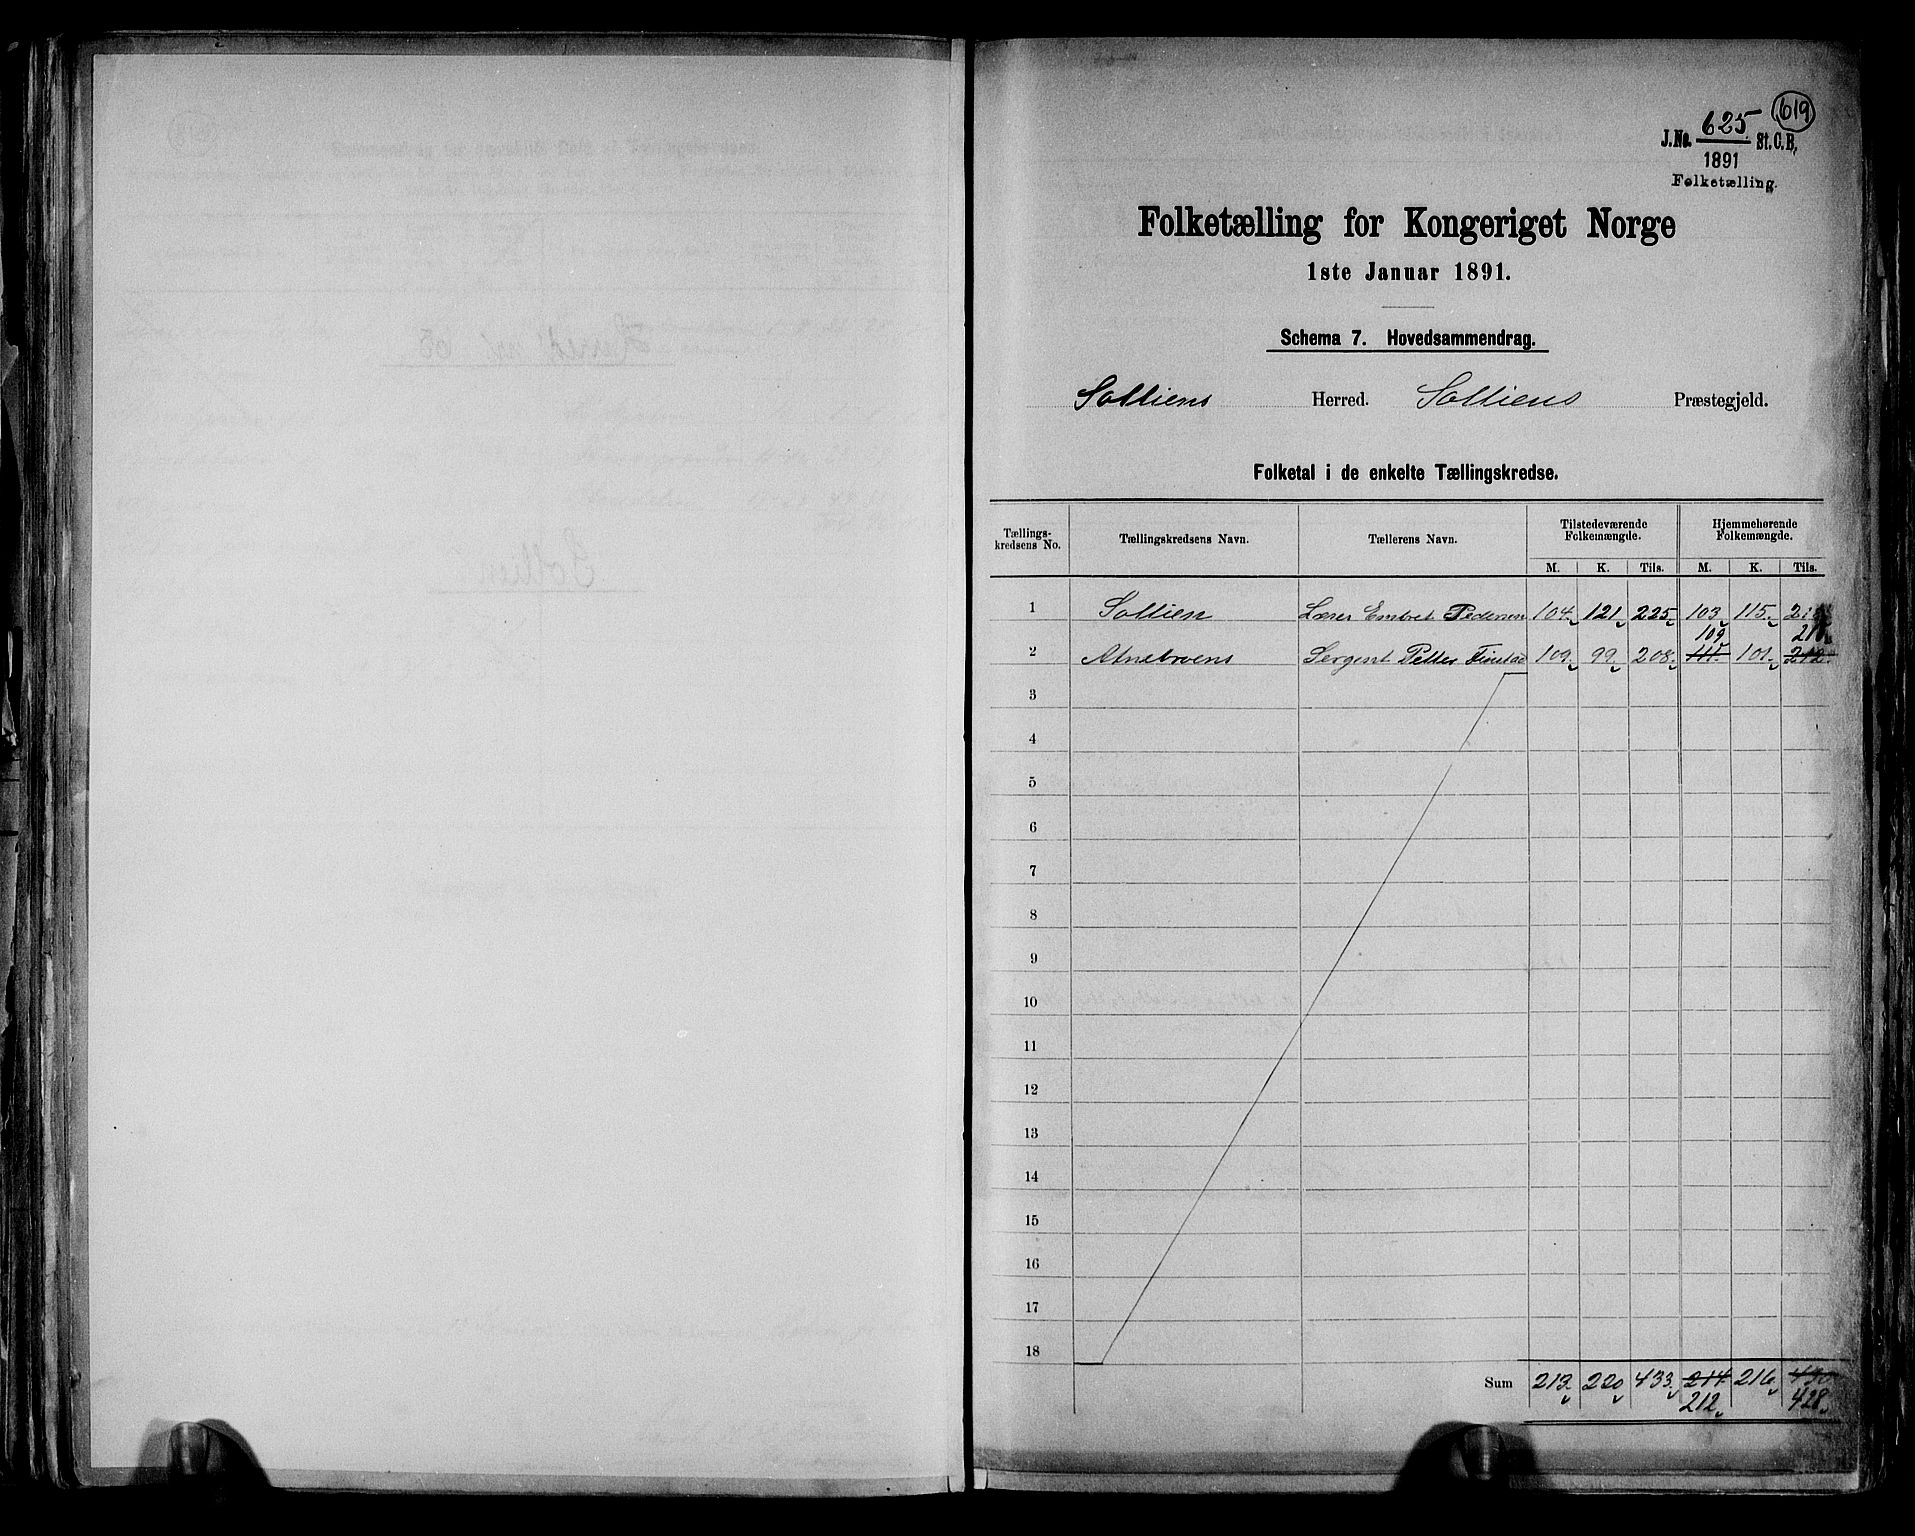 619
J.No. 625. St.C.B.
1891
Folketælling.
Folketælling for Kongeriget Norge
1ste Januar 1891.
Schema 7. Hovedsammendrag.
Solliens Herred. Solliens Præstegjeld.
Folketal i de enkelte Tællingskredse.
Tællingskredsens No. Tællingskredsens Navn. Tællerens Navn. Tilstedeværende Folkemængde. Hjemmehørende Folkemængde.
M. K. Tils. M. K. Tils.
1 Sollien Lærer Embret Pedersen 104 121 225 103 115 218
109 210
2 Atnebroens Sergent Petter Finstad 109 99 208 111 101 212
3
4
5
6
7
8
9
10
11
12
13
14
15
16
17
18
Sum 213 220 433 214 216 430
212 428
Herred no 65
Sollien